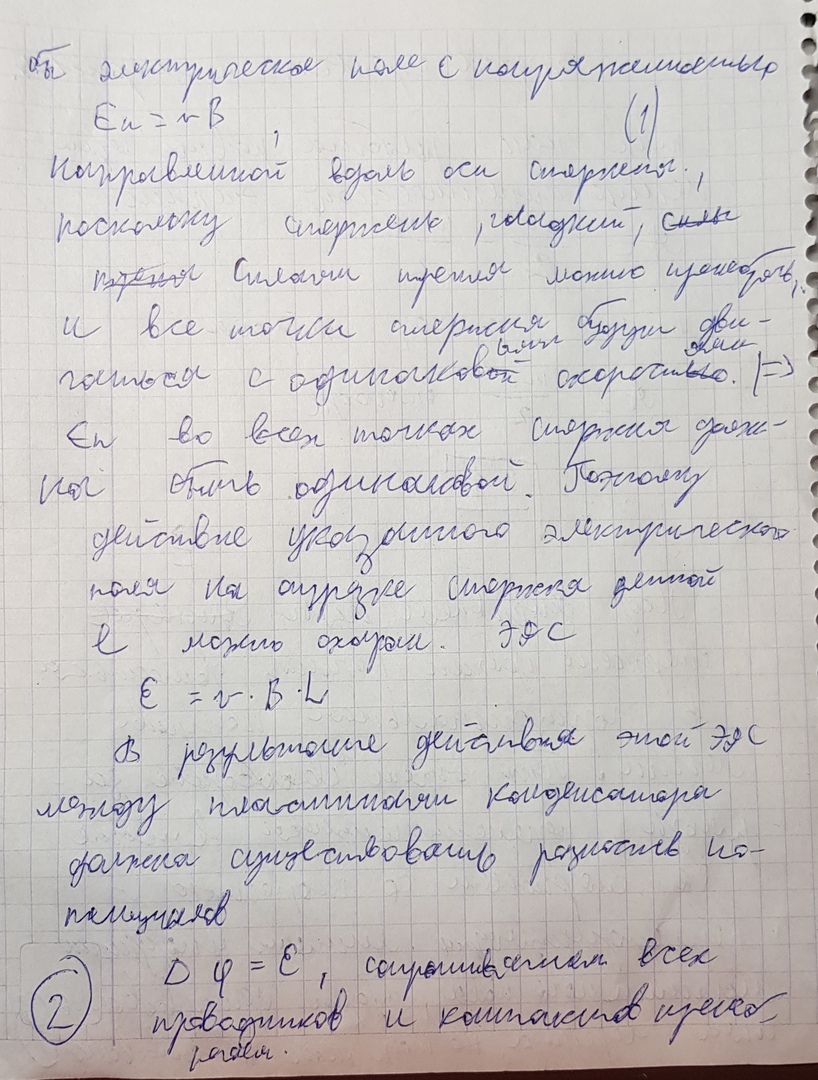 бы электрическое поле с напряженностью
Eп = vB , (1)
направленной вдоль оси стержня,
поскольку стержень, гладкий, силы
трения силами трения можно пренебречь,
и все точки стержня будут дви-
гаться с одинаковыми скоростями. |=>
Eп во всех точках стержня долж-
на быть одинаковой. Поэтому
действие указанного электрического
поля на отрезке стержня длиной
l можно охаракт. ЭДС
Ɛ = v · B · L
В результате действия этой ЭДС
между пластинами конденсатора
должна существовать разность по-
тенциалов
Δ φ = Ɛ, сопротивлением всех
проводников и контактов пренеб
регаем.
2